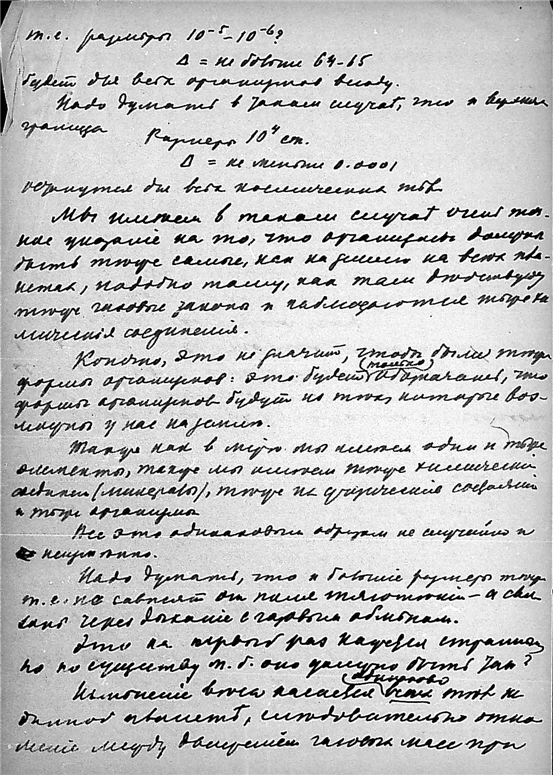 т.е. размеры 10⁻⁵–10⁻⁶?
Δ = не больше 64–65
будет для всех организмов всюду.
Надо думать в таком случаѣ, что и верхняя
граница
Размеры 10⁴ см.
Δ = не меньше 0.0001
останутся для всех космических тѣл.
Мы имѣем в таком случаѣ очень
указаніе на то, что организмы должны
быть тѣже самые, как на земле на всех пла-
нетах, подобно тому, как там действуют
тѣже газовые законы и наблюдаются тѣже хи-
мическія соединенія.
Конечно, это не значит, чтобы были тѣже
формы организмов: это будет (только) обозначать, что
формы организмов будут из тѣх, которые воз-
можны у нас на земле.
Также как в мире мы имѣем одни и тѣже
элементы, также мы имѣем тѣже химическія
соединенія (минералы), тѣже их физическія состоянія
и тѣже организмы
Все это одинаковым образом не случайно и
неизменно.
Надо думать, что и большие размеры тоже
т.е. не зависят от поля тяготѣнія – а свя-
заны через дыханіе с газовым обменом.
Это на первый раз кажется странным
но по существу т.б. оно должно быть так?
Измененіе веса касается всех тѣл
, следовательно отно-
шеніе между движеніем газовых масс при